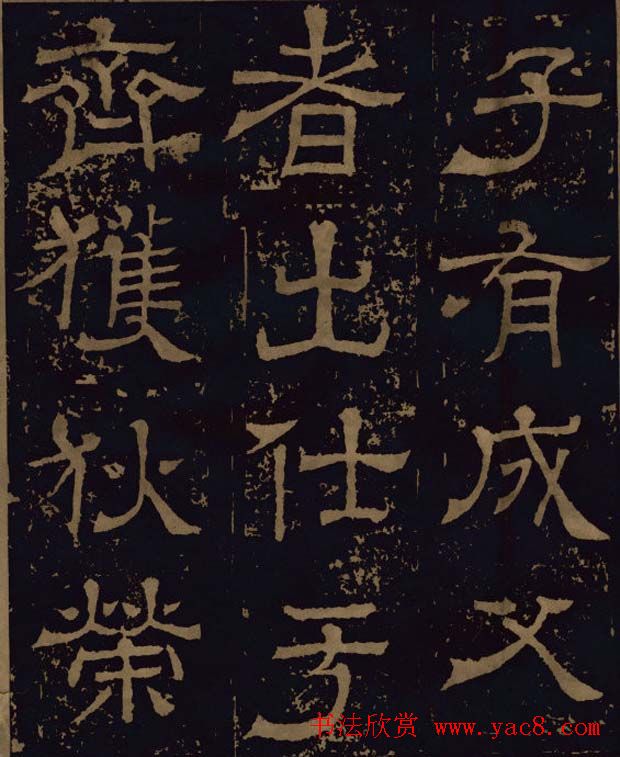 子有成父
者出仕于
齊獲狄榮
书法欣赏 www.yac8.com